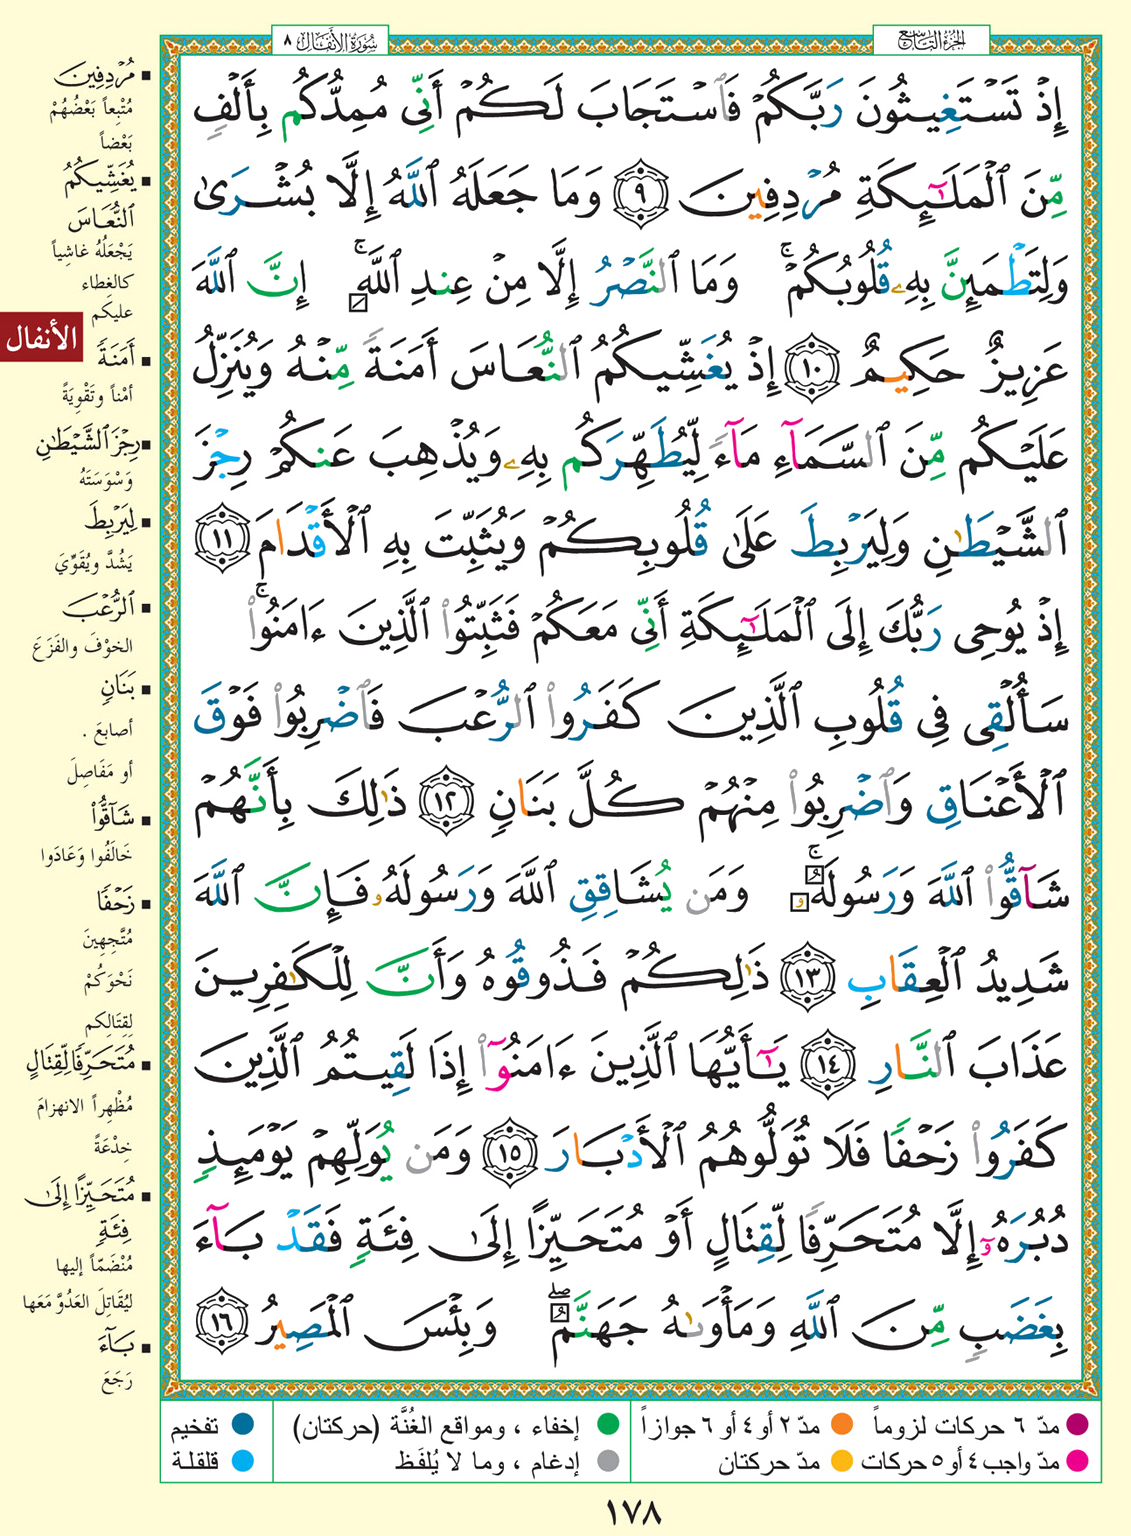 الجزء التاسع
سورة الأنفال ٨
إِذْ تَسْتَغِيثُونَ رَبَّكُمْ فَٱسْتَجَابَ لَكُمْ أَنِّى مُمِدُّكُم بِأَلْفٍ
مِّنَ ٱلْمَلَـٰٓئِكَةِ مُرْدِفِينَ ٩ وَمَا جَعَلَهُ ٱللَّهُ إِلَّا بُشْرَىٰ
وَلِتَطْمَئِنَّ بِهِۦ قُلُوبُكُمْ ۚ وَمَا ٱلنَّصْرُ إِلَّا مِنْ عِندِ ٱللَّهِ ۚ إِنَّ ٱللَّهَ
عَزِيزٌ حَكِيمٌ ١٠ إِذْ يُغَشِّيكُمُ ٱلنُّعَاسَ أَمَنَةً مِّنْهُ وَيُنَزِّلُ
عَلَيْكُم مِّنَ ٱلسَّمَآءِ مَآءً لِّيُطَهِّرَكُم بِهِۦ وَيُذْهِبَ عَنكُمْ رِجْزَ
ٱلشَّيْطَـٰنِ وَلِيَرْبِطَ عَلَىٰ قُلُوبِكُمْ وَيُثَبِّتَ بِهِ ٱلْأَقْدَامَ ١١
إِذْ يُوحِى رَبُّكَ إِلَى ٱلْمَلَـٰٓئِكَةِ أَنِّى مَعَكُمْ فَثَبِّتُوا۟ ٱلَّذِينَ ءَامَنُوا۟ ۚ
سَأُلْقِى فِى قُلُوبِ ٱلَّذِينَ كَفَرُوا۟ ٱلرُّعْبَ فَٱضْرِبُوا۟ فَوْقَ
ٱلْأَعْنَاقِ وَٱضْرِبُوا۟ مِنْهُمْ كُلَّ بَنَانٍ ١٢ ذَٰلِكَ بِأَنَّهُمْ
شَآقُّوا۟ ٱللَّهَ وَرَسُولَهُۥ ۚ وَمَن يُشَاقِقِ ٱللَّهَ وَرَسُولَهُۥ فَإِنَّ ٱللَّهَ
شَدِيدُ ٱلْعِقَابِ ١٣ ذَٰلِكُمْ فَذُوقُوهُ وَأَنَّ لِلْكَـٰفِرِينَ
عَذَابَ ٱلنَّارِ ١٤ يَـٰٓأَيُّهَا ٱلَّذِينَ ءَامَنُوٓا۟ إِذَا لَقِيتُمُ ٱلَّذِينَ
كَفَرُوا۟ زَحْفًا فَلَا تُوَلُّوهُمُ ٱلْأَدْبَارَ ١٥ وَمَن يُوَلِّهِمْ يَوْمَئِذٍ
دُبُرَهُۥٓ إِلَّا مُتَحَرِّفًا لِّقِتَالٍ أَوْ مُتَحَيِّزًا إِلَىٰ فِئَةٍ فَقَدْ بَآءَ
بِغَضَبٍ مِّنَ ٱللَّهِ وَمَأْوَىٰهُ جَهَنَّمُ ۖ وَبِئْسَ ٱلْمَصِيرُ ١٦
■ مُرْدِفِينَ
مُتْبِعاً بَعْضُهُمْ
بَعْضاً
■ يُغَشِّيكُمُ
ٱلنُّعَاسَ
يَجْعَلُهُ غاشِياً
كالغِطاء
عليكم
الأنفال
■ أَمَنَةً
أمْناً وتَقْوِيَةً
■ رِجْزَ ٱلشَّيْطَـٰنِ
وَسْوَسَتَهُ
■ لِيَرْبِطَ
يَشُدَّ ويُقَوِّيَ
■ ٱلرُّعْبَ
الخوْفَ والفَزَعَ
■ بَنَانٍ
أصابعَ .
أو مَفَاصِلَ
■ شَآقُّوا۟
خَالَفُوا وَعَادَوا
■ زَحْفًا
مُتَّجِهِينَ
نَحْوَكُمْ
لِقِتَالِكم
■ مُتَحَرِّفًا لِّقِتَالٍ
مُظْهِراً الانهزامَ
خِدْعَةً
■ مُتَحَيِّزًا إِلَىٰ
فِئَةٍ
مُنْضَمّاً إليها
ليُقَاتِلَ العَدُوَّ مَعَها
■ بَآءَ
رَجَعَ
مدّ ٦ حركات لزوماً
مدّ ٢ أو ٤ أو ٦ جوازاً
إخفاء ، ومواقع الغُنَّة (حركتان)
تفخيم
مدّ واجب ٤ أو ٥ حركات
مدّ حركتان
إدغام ، وما لا يُلفَظ
قلقلة
١٧٨